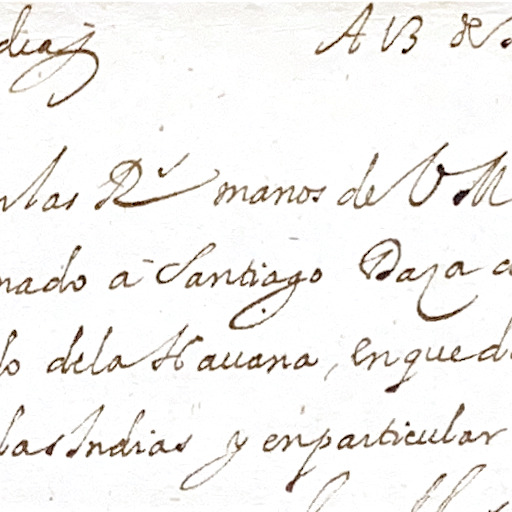 diaz A VB de
las Rs manos de V M
nado a Santiago Daza
lo dela Hauana, enqued
las Indias y enparticular